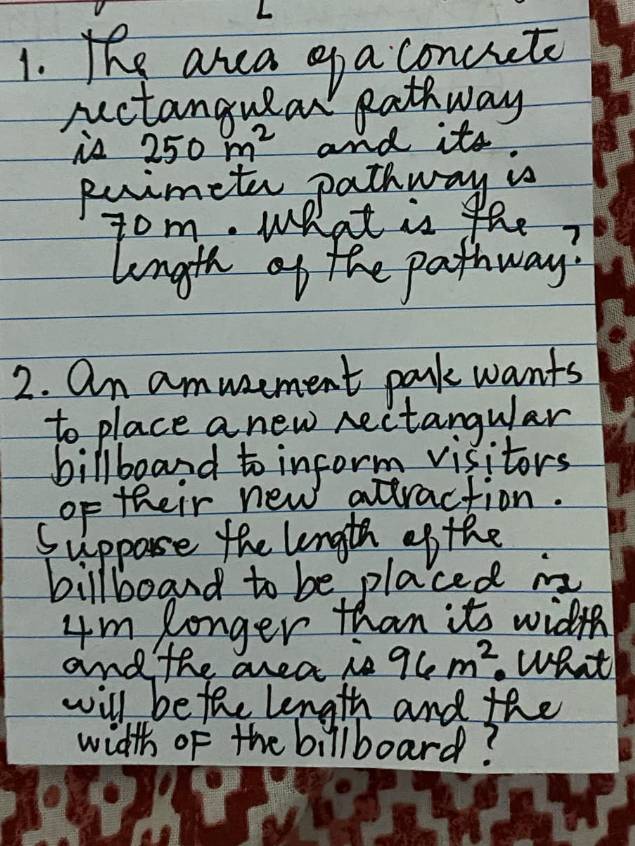 1. The area of a concrete
rectangular pathway
is 250 m² and its
perimeter pathway is
70 m. What is the
length of the pathway?
2. An amusement park wants
to place a new rectangular
billboard to inform visitors
of their new attraction.
Suppose the length of the
billboard to be placed is
4m longer than its width
and the area is 96 m². What
will be the length and the
width of the billboard?